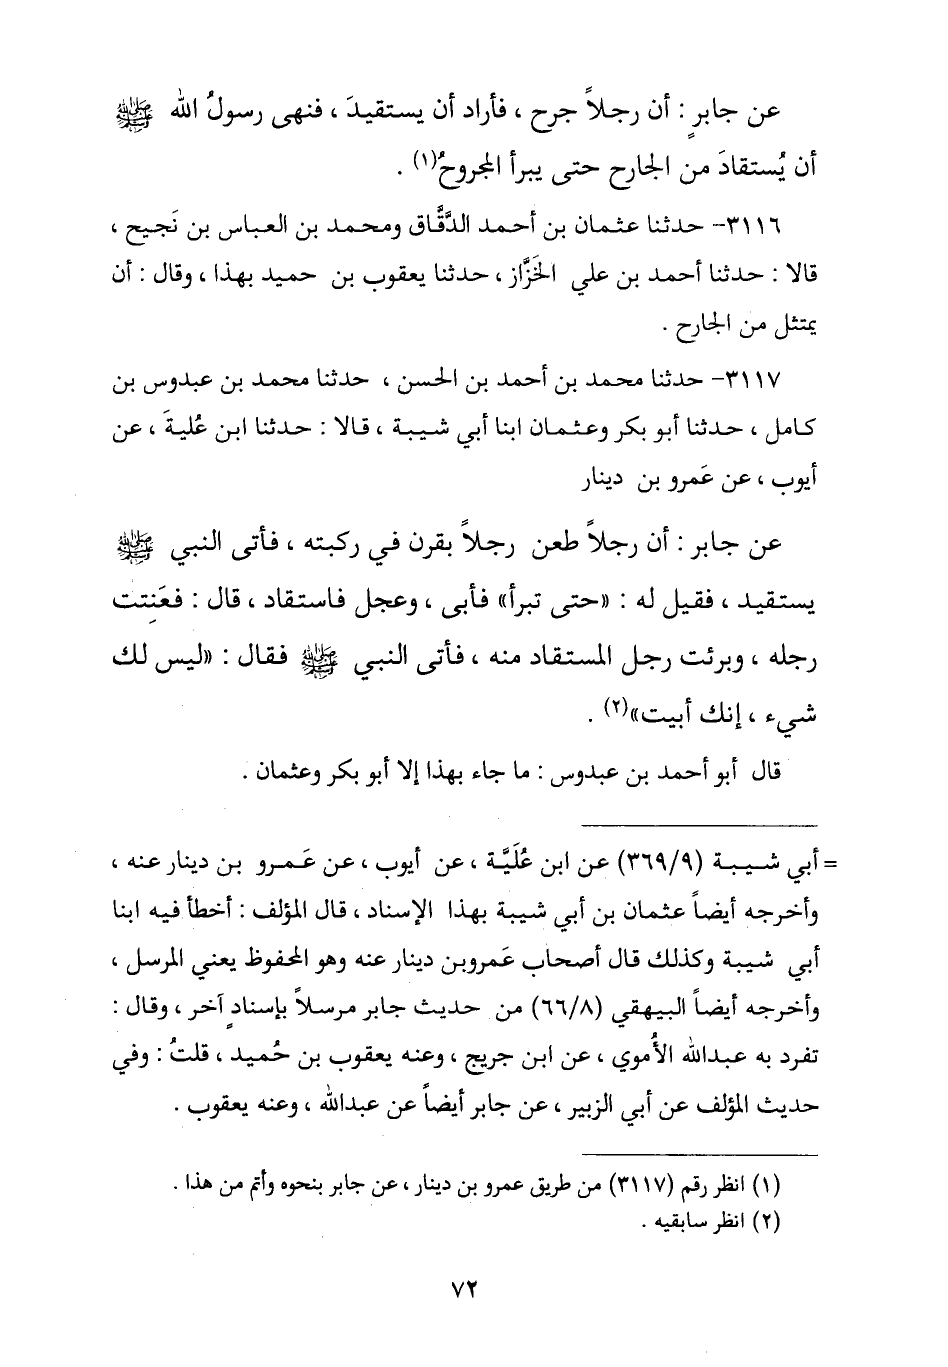 عن جابرٍ : أن رجلاً جرح ، فأراد أن يستقيدَ ، فنهى رسولُ الله ﷺ
أن يُستقادَ من الجارح حتى يبرأ المجروحُ(١) .
٣١١٦- حدثنا عثمان بن أحمد الدَّقَّاق ومحمد بن العباس بن نَجيح ،
قالا : حدثنا أحمد بن علي الخَزَّاز ، حدثنا يعقوب بن حميد بهذا ، وقال : أن
يمتثل من الجارح .
٣١١٧- حدثنا محمد بن أحمد بن الحسن ، حدثنا محمد بن عبدوس بن
كامل ، حدثنا أبو بكر وعثمان ابنا أبي شيبة ، قالا : حدثنا ابن عُليةَ ، عن
أيوب ، عن عَمرو بن دينار
عن جابر : أن رجلاً طعن رجلاً بقرن في ركبته ، فأتى النبي ﷺ
يستقيد ، فقيل له : «حتى تبرأ» فأبى ، وعجل فاستقاد ، قال : فعَنِتت
رجله ، وبرئت رجل المستقاد منه ، فأتى النبي ﷺ فقال : «ليس لك
شيء ، إنك أبيت»(٢) .
قال أبو أحمد بن عبدوس : ما جاء بهذا إلا أبو بكر وعثمان .
= أبي شيبة (٣٦٩/٩) عن ابن عُلَيَّة ، عن أيوب ، عن عَمرو بن دينار عنه ،
وأخرجه أيضاً عثمان بن أبي شيبة بهذا الإسناد ، قال المؤلف : أخطأ فيه ابنا
أبي شيبة وكذلك قال أصحاب عَمروبن دينار عنه وهو المحفوظ يعني المرسل ،
وأخرجه أيضاً البيهقي (٦٦/٨) من حديث جابر مرسلاً بإسنادٍ آخر ، وقال :
تفرد به عبدالله الأُموي ، عن ابن جريج ، وعنه يعقوب بن حُميد ، قلتُ : وفي
حديث المؤلف عن أبي الزبير ، عن جابر أيضاً عن عبدالله ، وعنه يعقوب .
(١) انظر رقم (٣١١٧) من طريق عمرو بن دينار ، عن جابر بنحوه وأتم من هذا .
(٢) انظر سابقيه .
٧٢